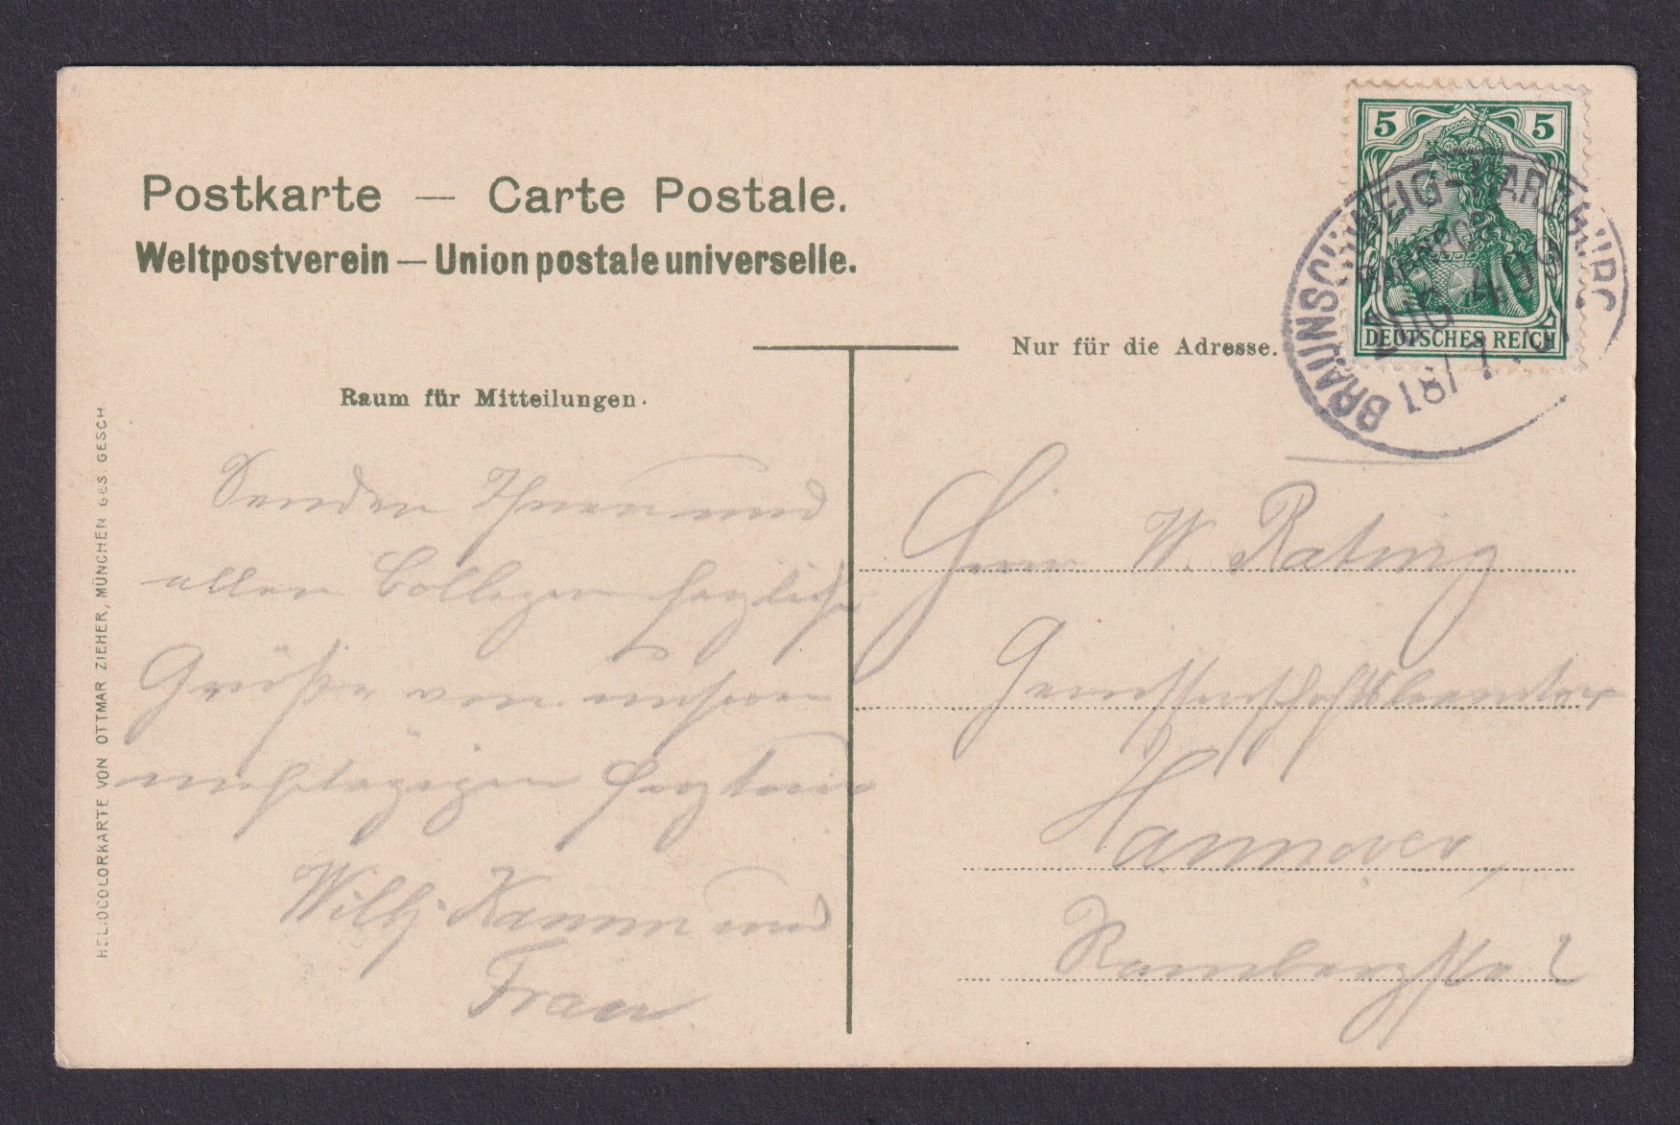 Postkarte — Carte Postale.
Weltpostverein — Union postale universelle.
Nur für die Adresse.
Raum für Mitteilungen.
HELIOCOLORKARTE VON OTTMAR ZIEHER, MÜNCHEN GES. GESCH.
5 5
DEUTSCHES REICH
BRAUNSCHWEIG-HARZBURG
BAHNPOST
ZUG
18/7
Senden Ihnen und
allen Collegen herzliche
Grüße von unserer
Willy Kamm und
Frau
Herrn W. Rating
Genossenschaftsbeamter
Hannover,
Rambergstr. 2